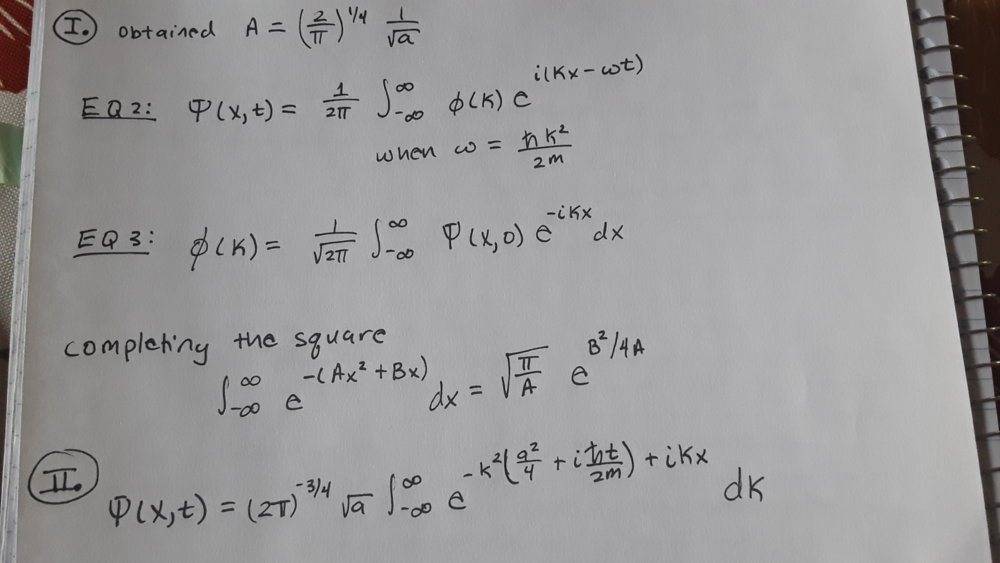 I. obtained A = (2/π)^1/4 1/√a
EQ 2: Ψ(x,t) = 1/2π ∫_-∞^∞ ϕ(k) e^i(kx - ωt)
when ω = ℏk²/2m
EQ 3: ϕ(k) = 1/√2π ∫_-∞^∞ Ψ(x,0) e^-ikx dx
completing the square
∫_-∞^∞ e^-(Ax² + Bx) dx = √π/A e^B²/4A
II. Ψ(x,t) = (2π)^-3/4 √a ∫_-∞^∞ e^-k²(a²/4 + iℏt/2m) + ikx dk